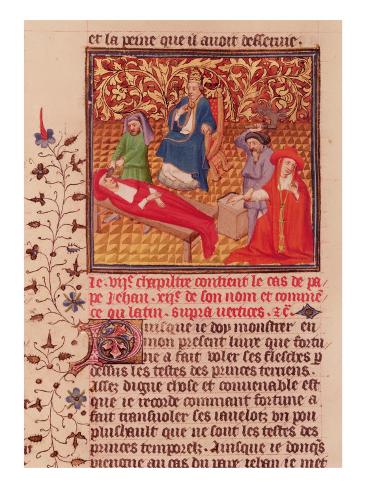 et la peine que il auoit desseruie.
Le .vijs. chapiltre contient le cas de pa
pe Jehan .xijs. de son nom et commẽ
ce ou latin. supra vertices. &c.
Puisque ie doy monstrer en
mon present liure que fortu
ne a fait voler ses flesches p
dessus les testes des princes terriens.
Assez digne chose et conuenable est
que ie recorde comment fortune a
fait transuoler ses iauelotz vn pou
plushault que ne sont les testes des
princes temporelz. Puisque ie doncqs
viengne au cas du pape iehan ie met